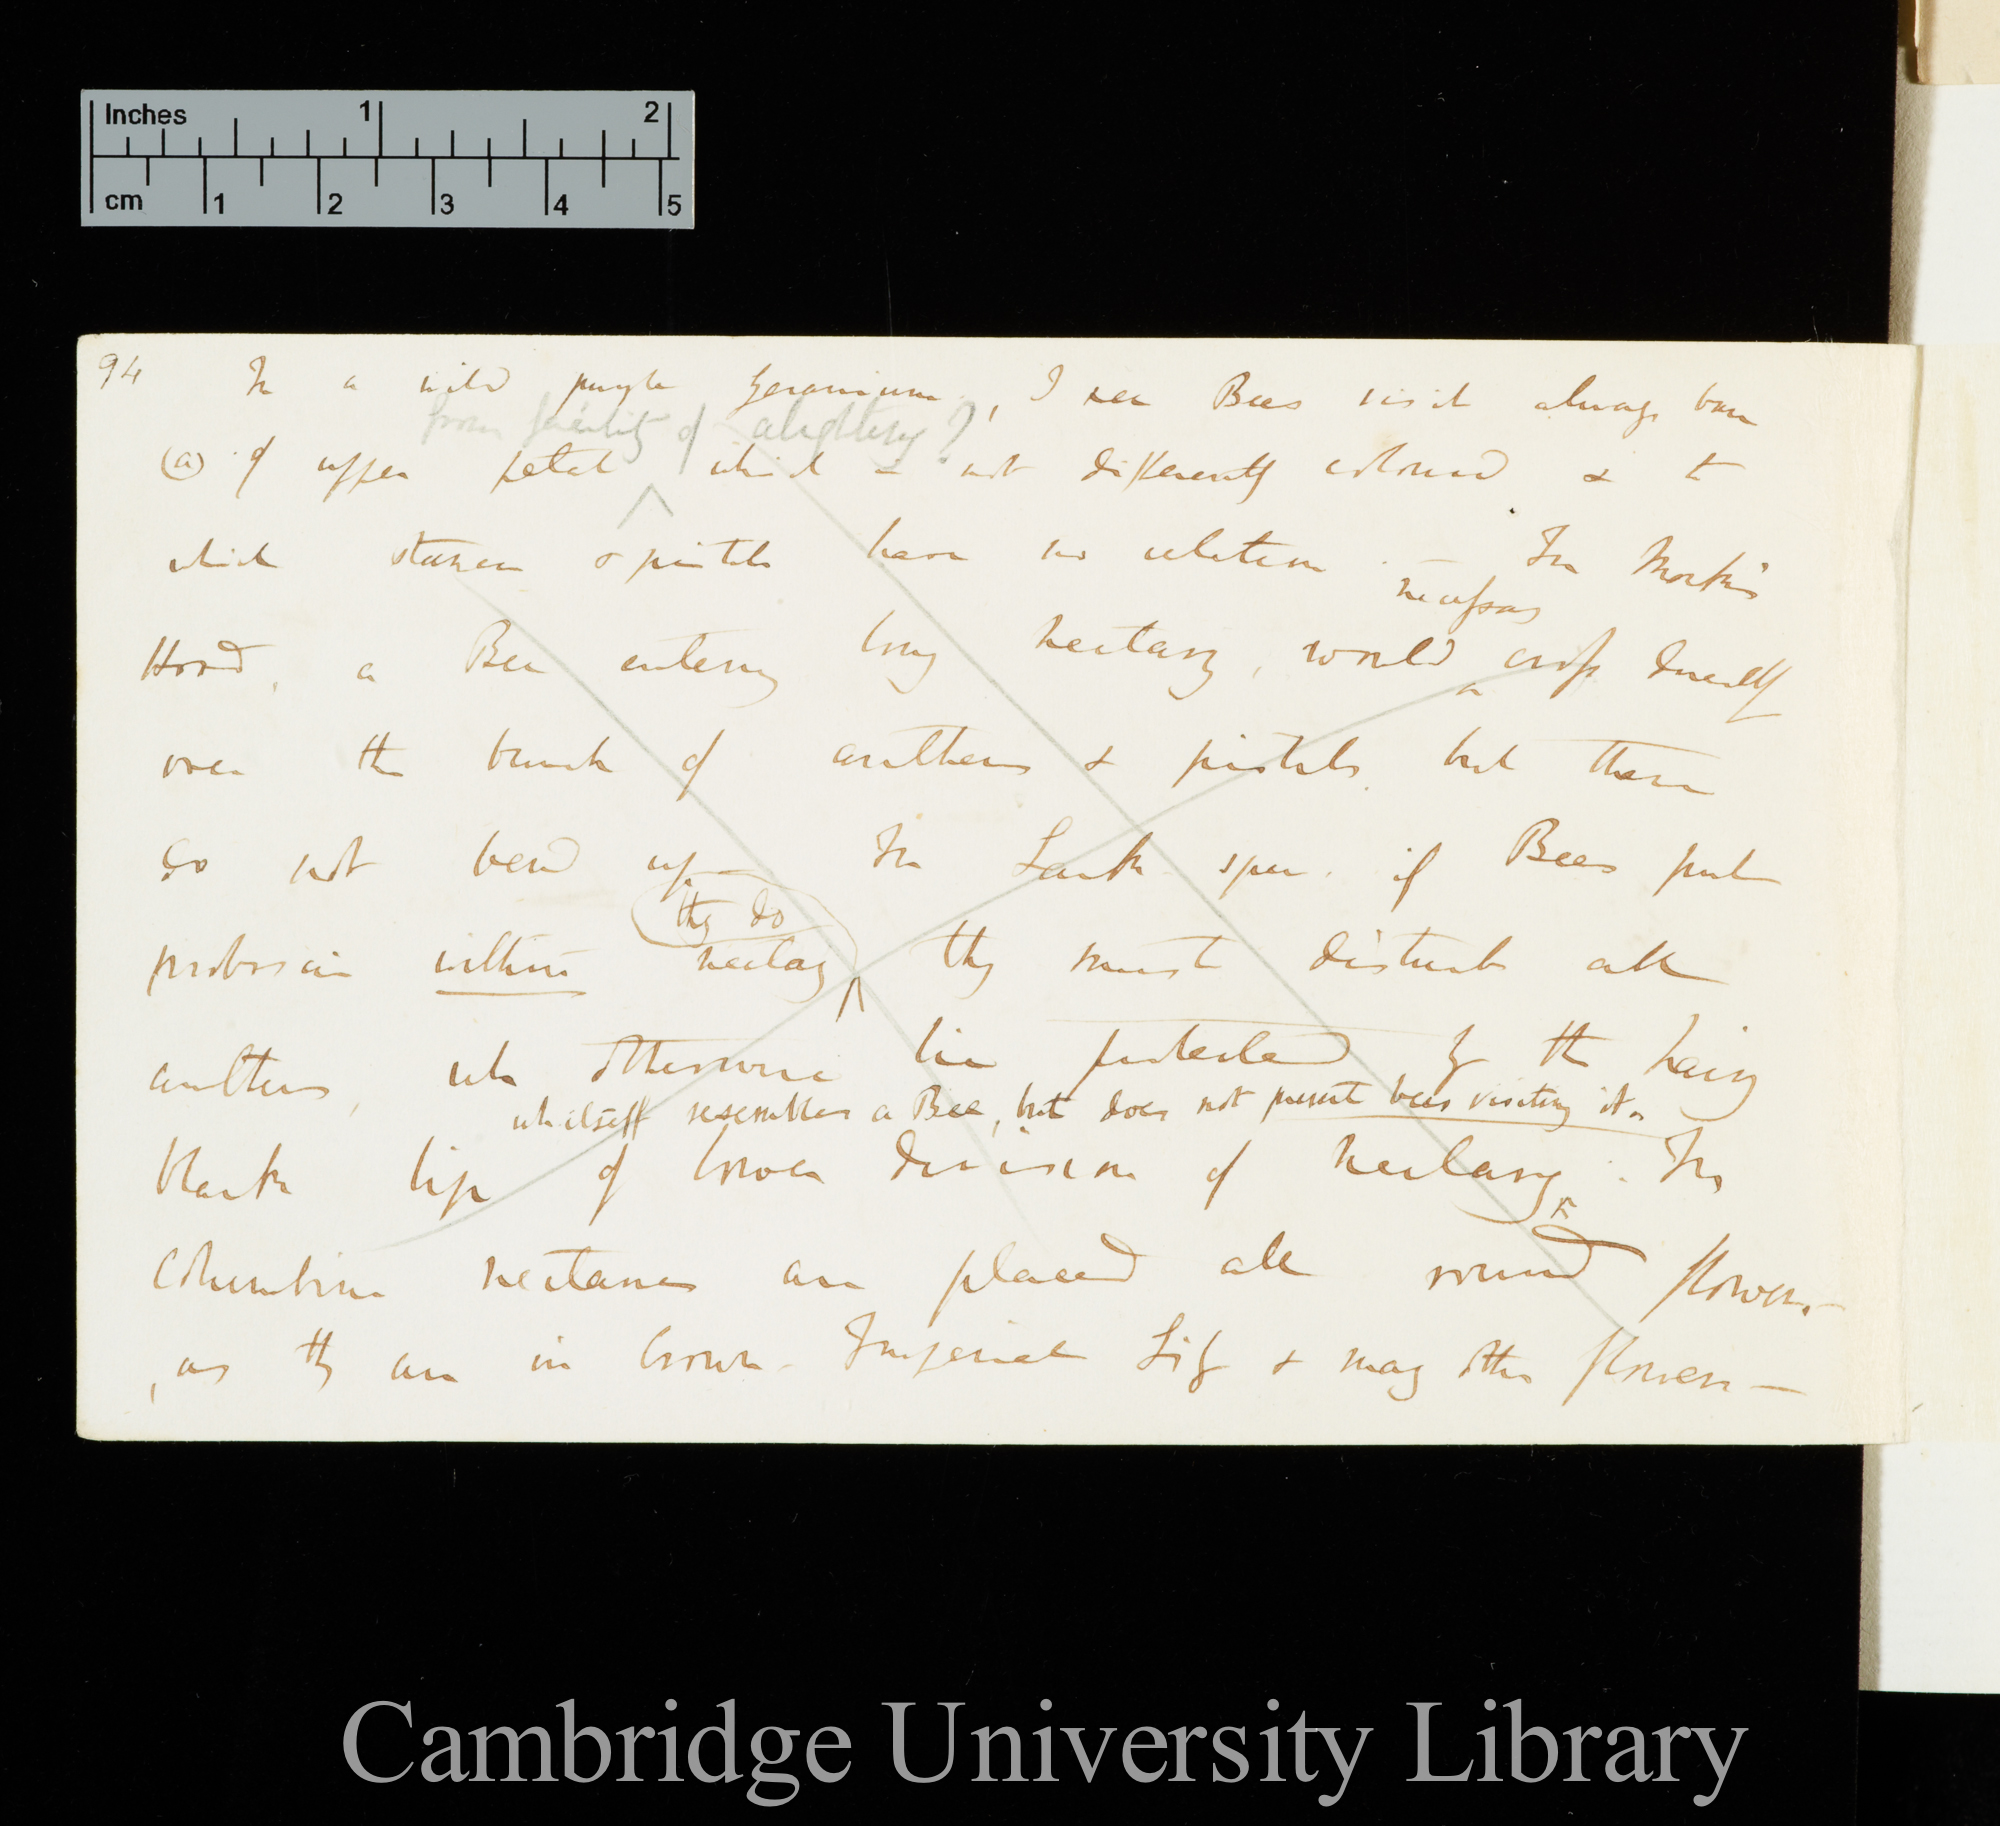 Inches 1 2
cm 1 2 3 4 5
94 In a wild purple geranium, I see Bees visit always base
from facility of alighting?
(a) of upper petal which is not differently coloured & to
which stamen & pistils have no relation. — In Monk's
necessary
Hood, a Bee entering long nectary, would cross directly
over the bunch of anthers & pistils but these
do not bend up — In Lark spur. if Bees put
they do
proboscis within nectary they must disturb all
anthers, wh otherwise lie protected by the hairy
wh itself resembles a Bee, but does not prevent bees visiting it.
black lip of lower division of nectary. In
Columbine nectaries are placed all round flower.—
, as they are in Crown-Imperial Lily & many other flowers —
Cambridge University Library